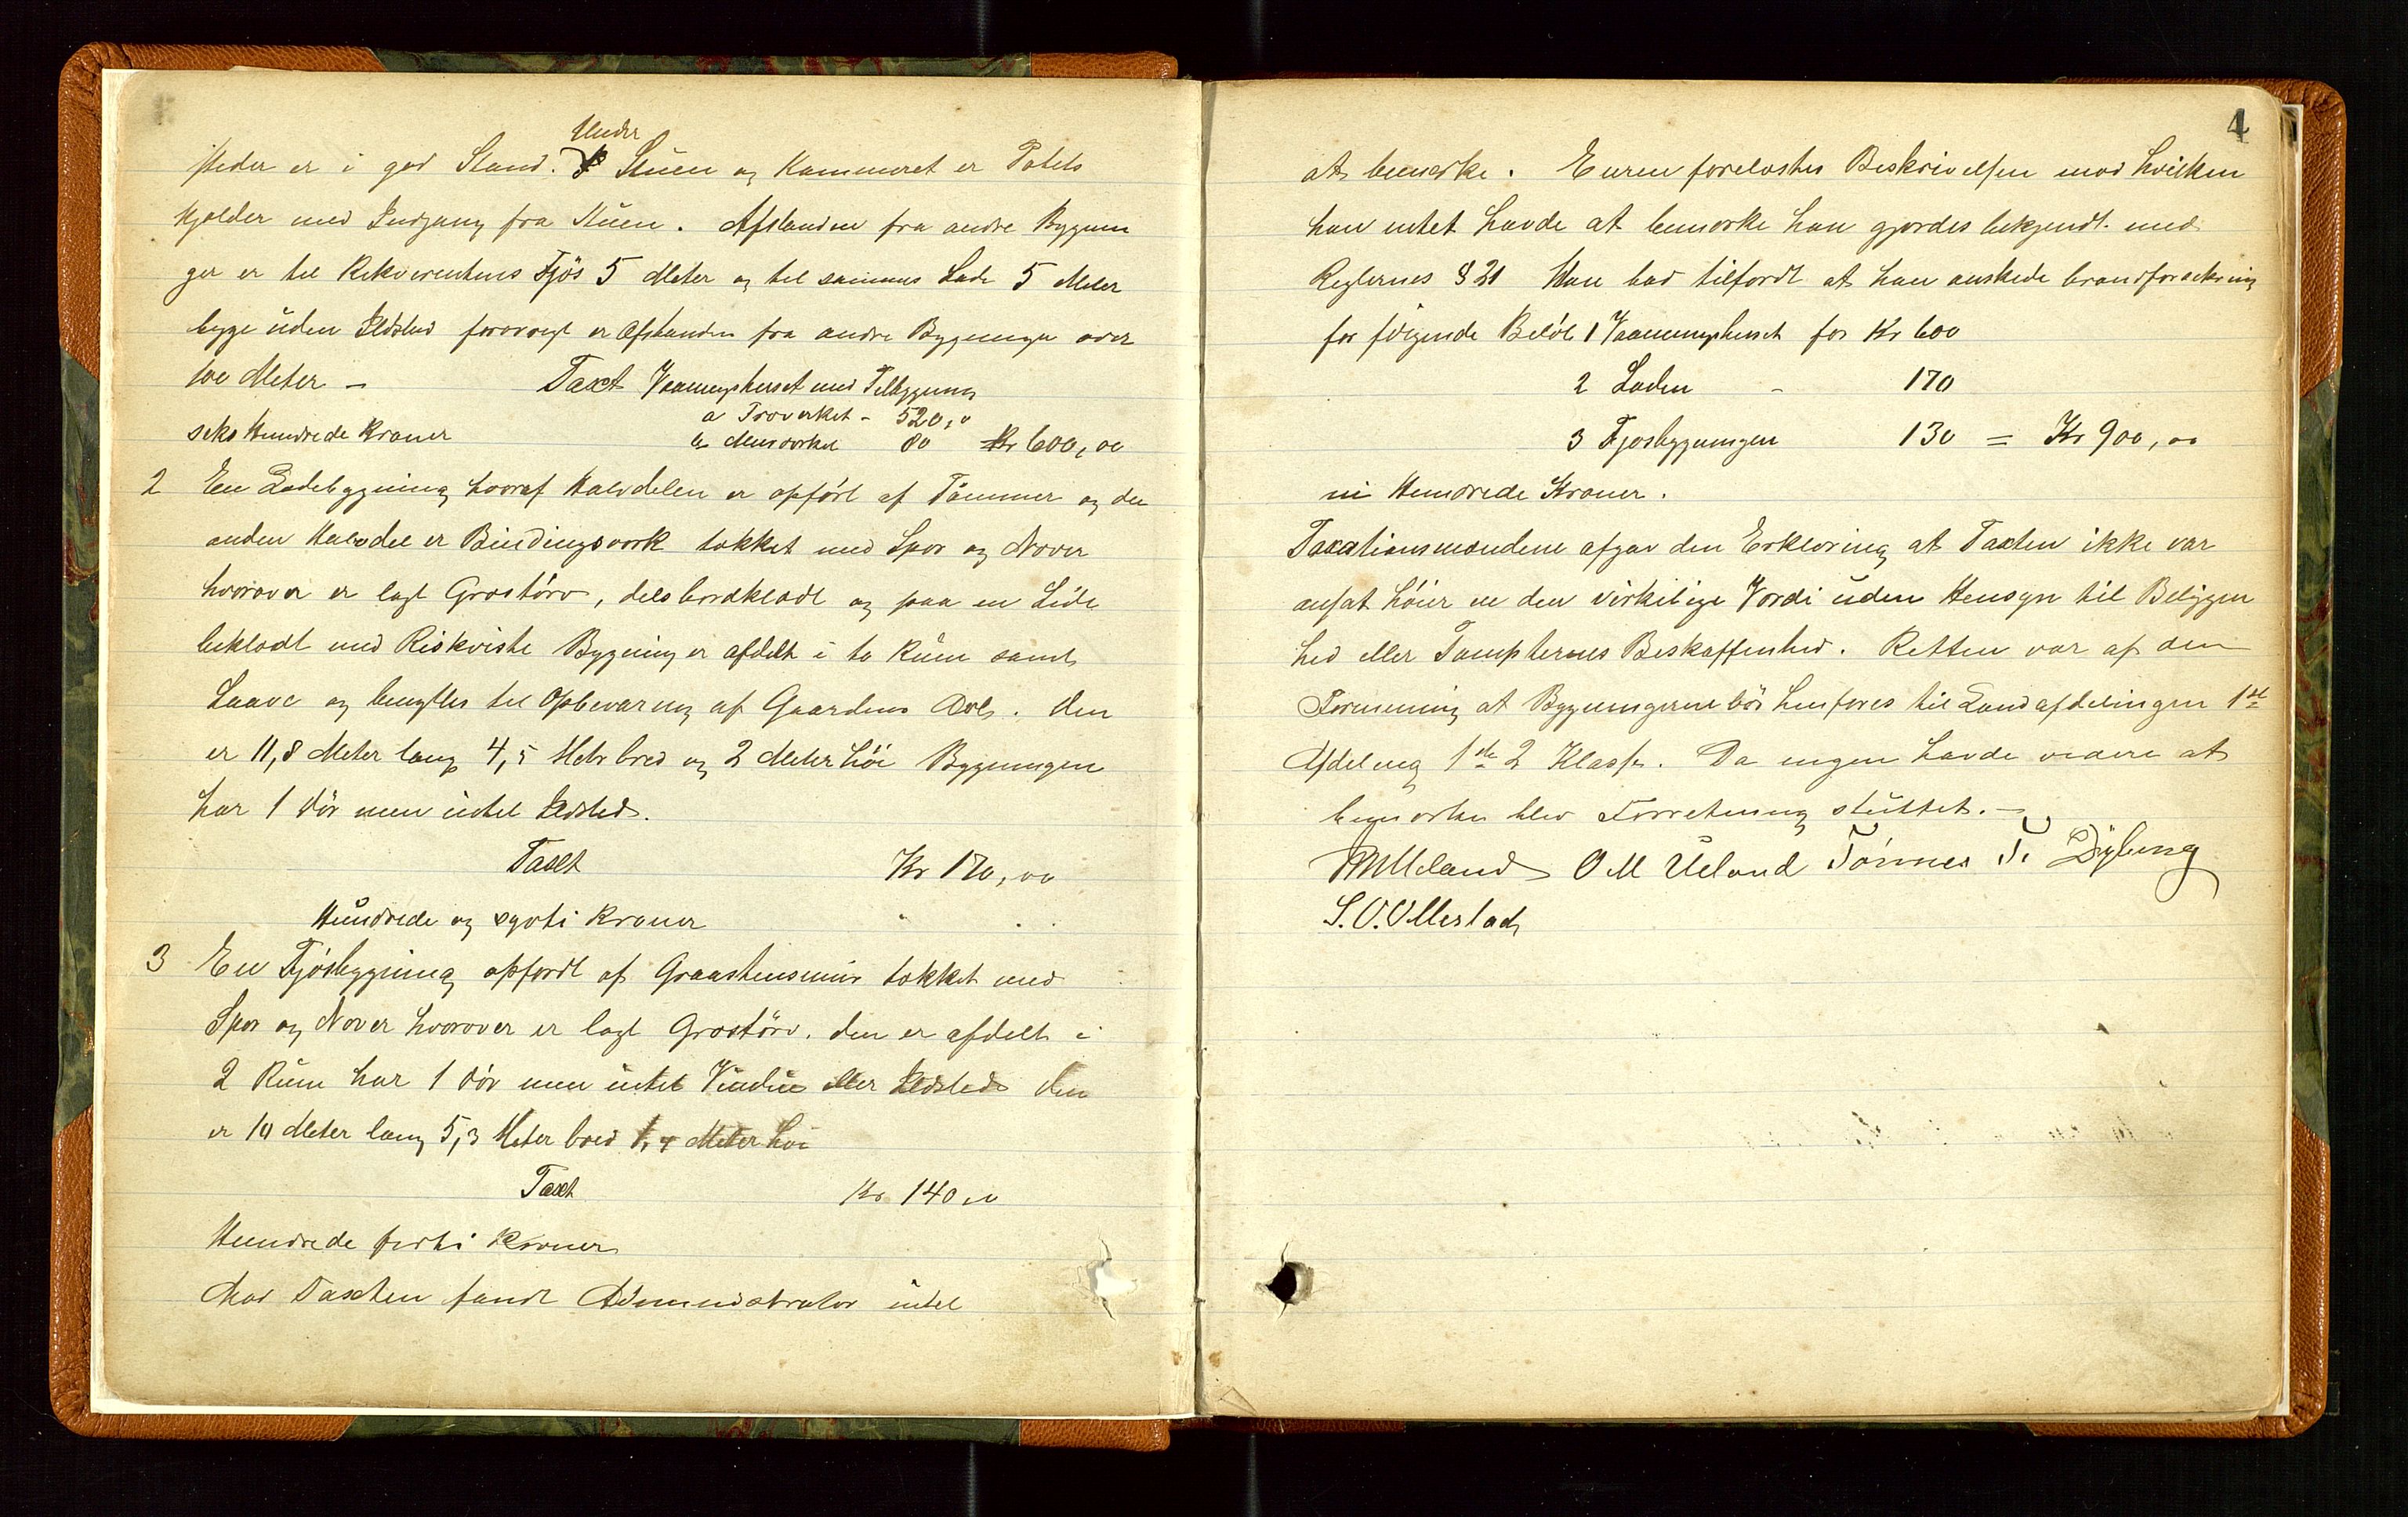 Under
steder er i god Stand. Stuen og Kammeret er Potets
Kjelder med Indgang fra Stuen. Afstanden fra andre Bygnin
ger er til Rekvirentens Fjøs 5 Meter og til sammes Lade 5 Meter
begge uden Ildsted forøvrigt er Afstanden fra andre Bygninger over
Meter - Taxt Vaaningshuset med Tilbygning
a Træverket - 520,"
seks Hundrede Kroner b Murværket 80 Kr 600,00
2 En Ladebygning hvoraf Halvdelen er opført af Tømmer og den
anden Halvdel er Bindingsværk tækket med Spær og Næver
hvorover er lagt Græstørv, dels bordklædt og paa en Side
beklædt med Riskviste Bygning er afdelt i to Rum samt
Laave og benyttes til Opbevaring af Gaardens Avl. Den
er 11,8 Meter lang 4,5 Meter bred og 2 Meter høi Bygningen
har 1 Dør men intet Ildsted.
Taxt Kr 170,00
Hundrede og sytti Kroner
3 En Fjøsbygning opført af Graastensmur tækket med
Spær og Næver hvorover er lagt Græstørv. den er afdelt i
2 Rum har 1 Dør men intet Vindue eller Ildsted den
er 10 Meter lang 5,3 Meter bred Meter høi
Taxt Kr 140,00
Hundrede førti Kroner
Mod Taxten fandt Administrator intet
4
at bemærke. Eieren forelæstes Beskrivelsen mod hvilken
han intet havde at bemærke han gjordes bekjendt med
Reglernes § 21 Han bad tilførdt at han ønskede brandforsekring
for følgende Beløb 1 Vaaningshuset for Kr 600
2 Laden - 170
3 Fjøsbygningen 130 = Kr 900,00
ni Hundrede Kroner.
Taxationsmændene afgav den Erklæring at Taxten ikke var
ansat høier en den virkelige Værdi uden Hensyn til Beliggen
hed eller Tomternes Beskaffenhed. Retten var af den
Formening at Bygningerne bør henføres til Landafdelingen 1ste
Afdeling 1ste 2 Klasse. Da ingen havde videre at
bemærke blev Forretning sluttet. -
O M Ueland Tønnes T.
S. O. Ollestad